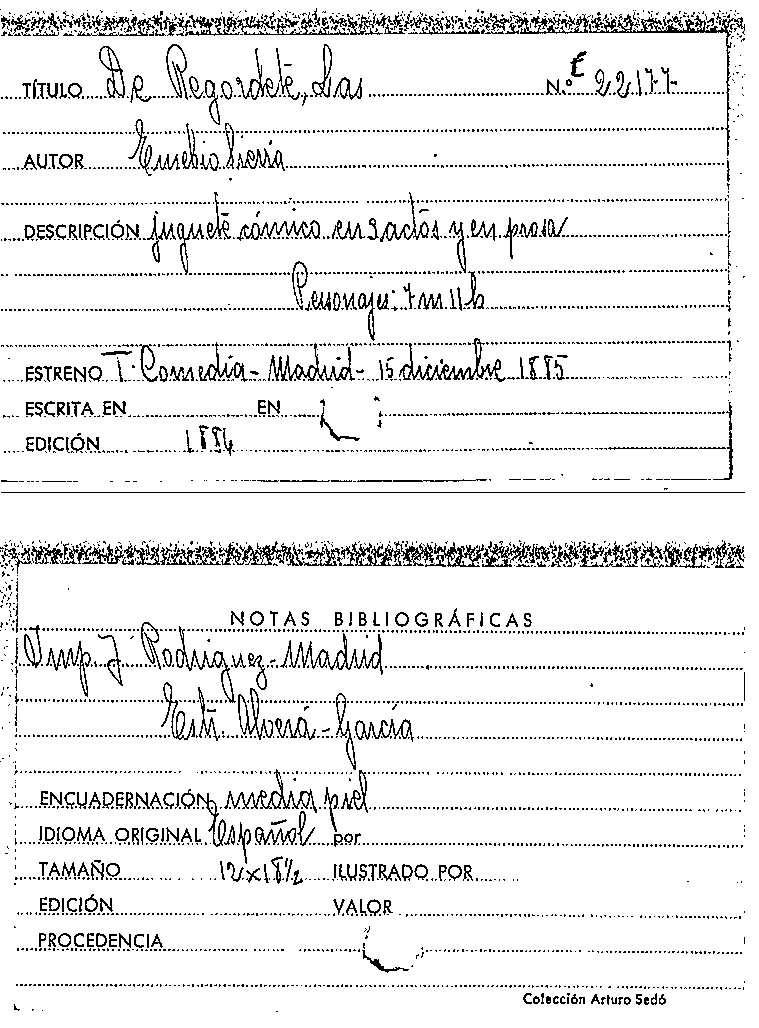 TÍTULO De Regordete, Las N.º E 22177
AUTOR Eusebio Sierra
DESCRIPCIÓN juguete cómico en 3 actos y en prosa
Personajes: 7 m 11 h
ESTRENO T. Comedia - Madrid - 15 diciembre 1885
ESCRITA EN EN
EDICIÓN 1886
NOTAS BIBLIOGRÁFICAS
Imp. J. Rodriguez - Madrid
Estr. Alverá - García
ENCUADERNACIÓN media piel
IDIOMA ORIGINAL Español por
TAMAÑO 12x18½ ILUSTRADO POR
EDICIÓN VALOR
PROCEDENCIA
Colección Arturo Sedó